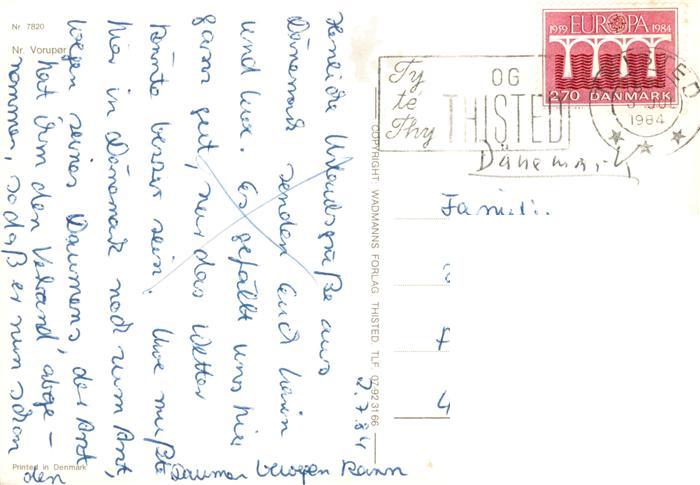 Nr. 7820
Nr. Vorupør
Herzliche Urlaubsgrüße aus
Dänemark senden Euch
und Uwe. Es gefällt uns hier
ganz gut, nur das Wetter
könnte besser sein. Uwe mußte
hier in Dänemark noch zum Arzt,
wegen seines Daumens, der Arzt
hat ihm den Verband abge-
nommen, sodaß er nun schon
den Daumen bewegen kann
2.7.84
Printed in Denmark
COPYRIGHT WADMANNS FORLAG THISTED. TLF. 07-92 31 66
1959 EUROPA 1984
270 DANMARK
Ty
té
Thy
OG
THISTED
THISTED
JUL
1984
Dänemark
Famili
4